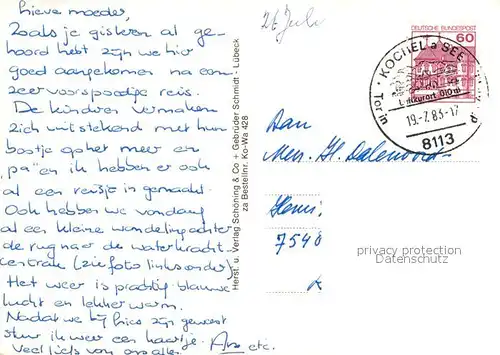 Lieve moeder,
Zoals je gisteren al ge-
hoord hebt zijn we hier
goed aangekomen na een
zeer voorspoedige reis.
De kinderen vermaken
zich uitstekend met hun
bootje op het meer en
"pa" en ik hebben er ook
al een reisje in gemaakt.
Ook hebben we vandaag
al een kleine wandeling achter
de rug naar de waterkracht
centrale (zie foto links onder)
Het weer is prachtig blauwe
lucht en lekker warm.
Nadat we bij hries zijn geweest
stuur ik weer een kaartje.
Veel liefs van ons allen. Ans etc.
Herst. u. Verlag Schöning & Co + Gebrüder Schmidt - Lübeck
za Bestellnr. Ko-Wa 428
26 Juli
DEUTSCHE BUNDESPOST
60
KOCHEL a SEE
Luftkurort 610 m
Tor in
19.-7.83-17
8113
Aan
Mev. H. Dalenoort
7548
privacy protection
Datenschutz